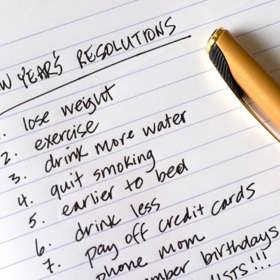 W YEAR'S RESOLUTIONS
1. lose weight
2. exercise
3. drink more water
4. quit smoking
5. earlier to bed
6. drink less
7. pay off credit cards
phone mom
mber birthdays
lists!!!